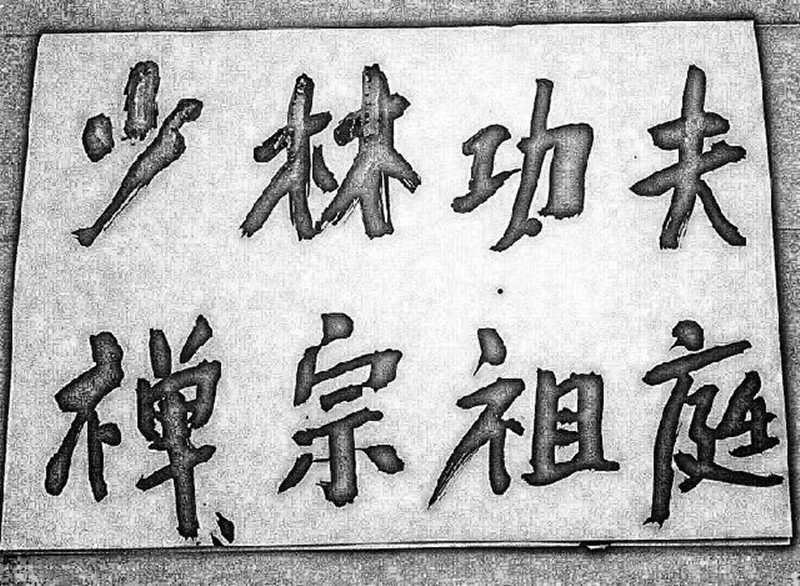 少林功夫
禅宗祖庭